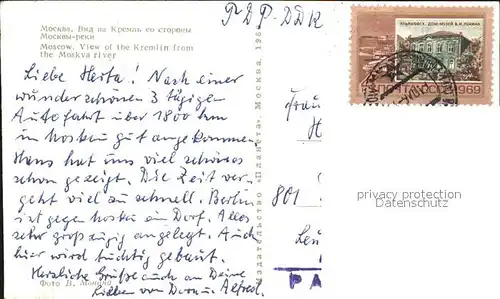 Москва. Вид на Кремль со стороны
Москвы-реки
Moscow. View of the Kremlin from
the Moskva river
ГДР-DDR
Liebe Herta! Nach einer
wunderschönen 3 tägigen
Autofahrt über 1800 km
in Moskau gut angekommen.
Hans hat uns viel schönes
schon gezeigt. Die Zeit ver-
geht viel zu schnell. Berlin
ist gegen Moskau ein Dorf. Alles
sehr großzügig angelegt. Auch
hier wird tüchtig gebaut.
Herzliche Grüße auch an Deine
Lieben von Alfred.
Фото В.
Издательство «Планета». Москва. 196
УЛЬЯНОВСК. ДОМ-МУЗЕЙ В.И.ЛЕНИНА
ПОЧТА СССР 1969
Frau
H
801
Leu
PA
privacy protection
Datenschutz